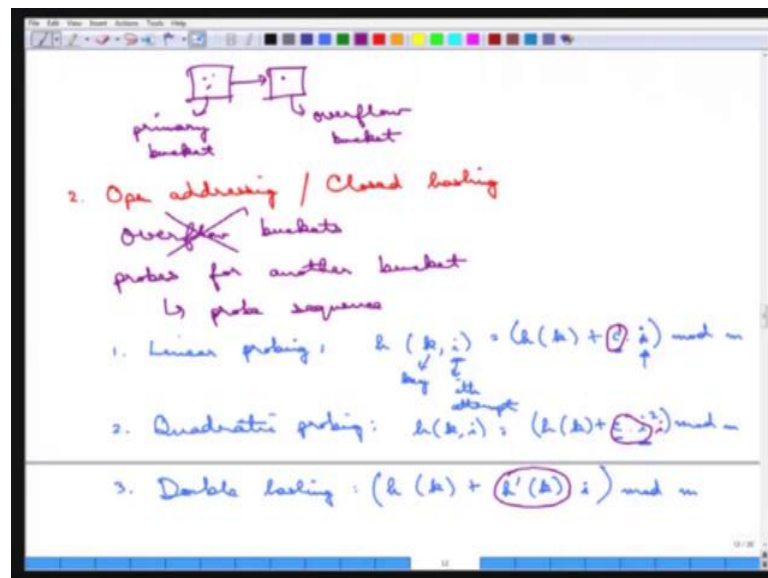 File Edit View Insert Actions Tools Help
primary bucket
overflow bucket
2. Ope addressing / Closed hashing
overflow buckets
probes for another bucket
↳ probe sequence
1. Linear probing : h (k, i) = (h(k) + c. i) mod m
key
ith attempt
2. Quadratic probing : h(k, i) = (h(k) + c. i²) mod m
3. Double hashing : (h (k) + h'(k) i) mod m
12